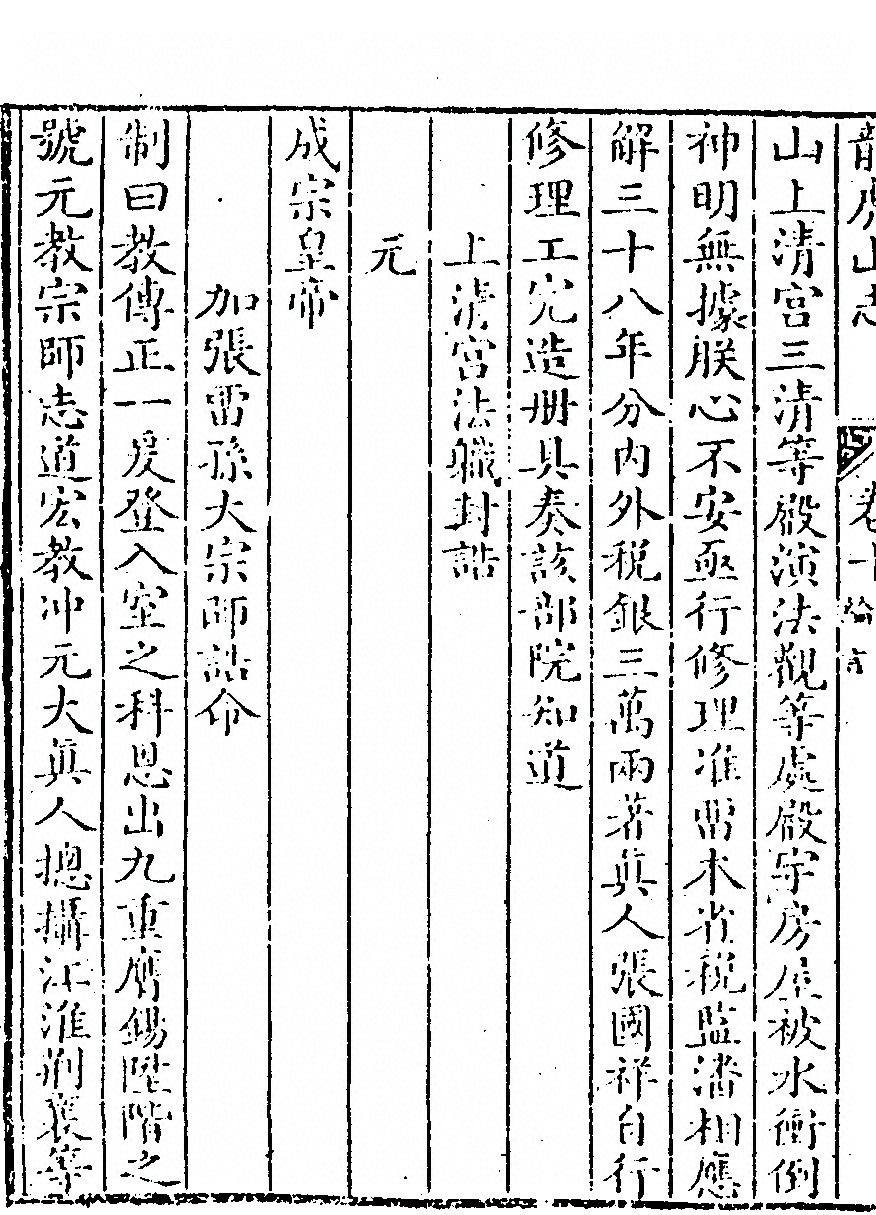 龍虎山志 卷十 綸言
山上清宮三清等殿演法觀等處殿宇房屋被水衝倒
神明無據朕心不安亟行修理准畱本省稅監潘相應
解三十八年分內外稅銀三萬兩著眞人張國祥自行
修理工完造册具奏該部院知道
上清宮法職封誥
元
成宗皇帝
加張畱孫大宗師誥命
制曰教傳正一爰登入室之科恩出九重膺錫陞階之
號元教宗師志道宏教冲元大眞人摠攝江淮荆襄等